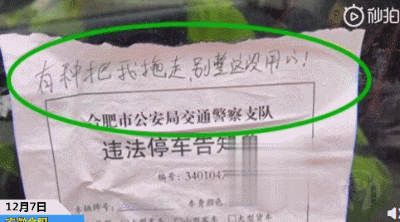 秒拍
有种把我拖走,别整这没用的!
合肥市公安局交通警察支队
违法停车告知
编号:340104
车辆牌号: 车身颜色
12月7日